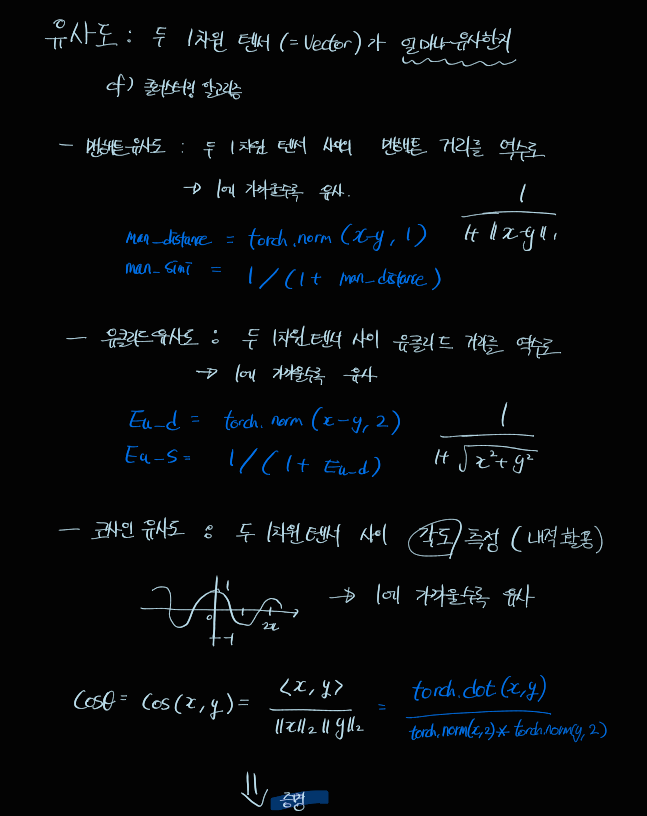 유사도 : 두 1차원 텐서 (=Vector)가 얼마나 유사한지
cf) 클러스터링 알고리즘
- 맨해튼 유사도 : 두 1차원 텐서 사이의 맨해튼 거리를 역수로
→ 1에 가까울수록 유사.
1 / 1+ ||x-y||₁
man_distance = torch.norm (x-y, 1)
man_simi = 1 / (1 + man_distance)
- 유클리드 유사도 : 두 1차원 텐서 사이 유클리드 거리를 역수로
→ 1에 가까울수록 유사
Eu_d = torch.norm (x-y, 2)
Eu_s = 1 / (1 + Eu_d)
1 / 1+ √x²+y²
- 코사인 유사도 : 두 1차원 텐서 사이 각도 측정 (내적 활용)
1
0
2π
-1
→ 1에 가까울수록 유사
Cosθ = Cos(x,y) = <x,y> / ||x||₂ ||y||₂ = torch.dot(x,y) / torch.norm(x,2) * torch.norm(y,2)
⇓ 증명